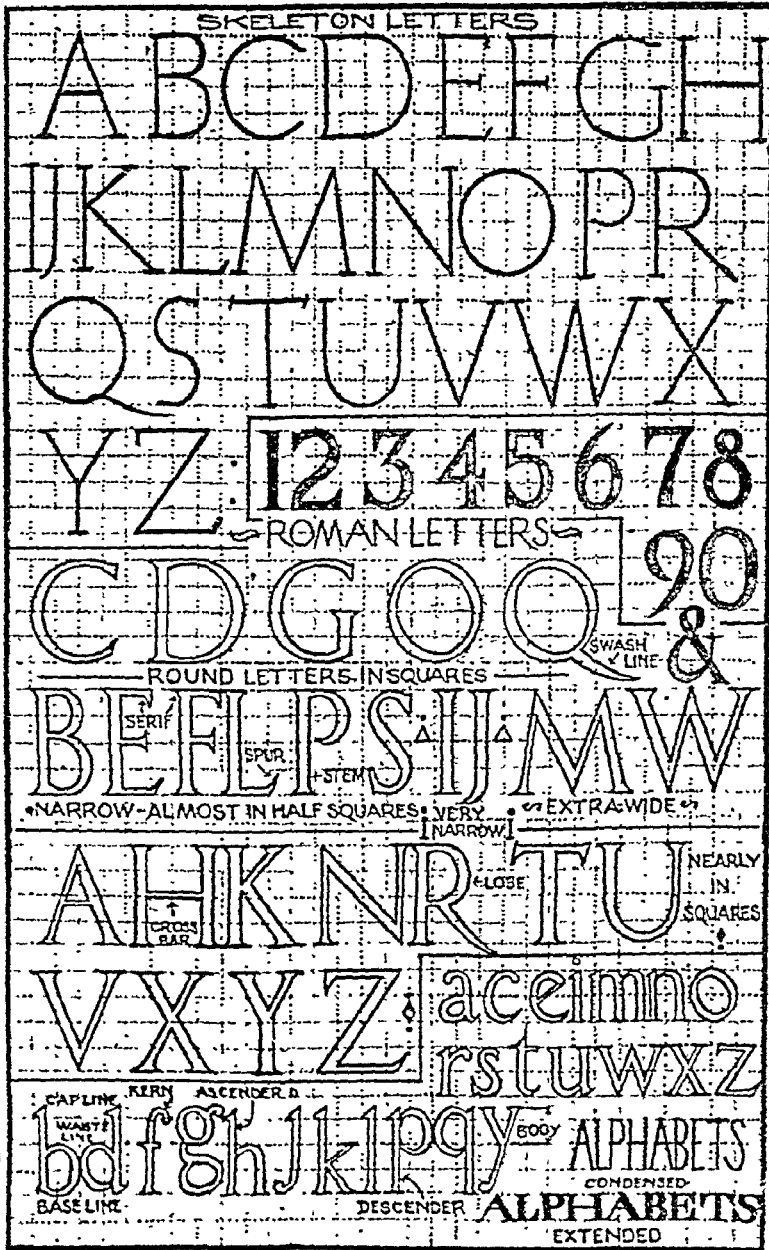 SKELETON LETTERS
A B C D E F G H
I J K L M N O P R
Q S T U V W X
Y Z
1 2 3 4 5 6 7 8
9 0
&
ROMAN LETTERS
C D G O Q
SWASH
LINE
ROUND LETTERS IN SQUARES
B E F L P S I J M W
SERIF
SPUR
STEM
NARROW-ALMOST IN HALF SQUARES
VERY
NARROW
EXTRA-WIDE
A H K N R T U
CROSS
BAR
LOBE
NEARLY
IN
SQUARES
V X Y Z
a c e i m n o
r s t u w x z
CAP LINE
KERN
ASCENDER
WAIST
LINE
b d f g h j k l p q y
BODY
BASE LINE
DESCENDER
ALPHABETS
CONDENSED
ALPHABETS
EXTENDED